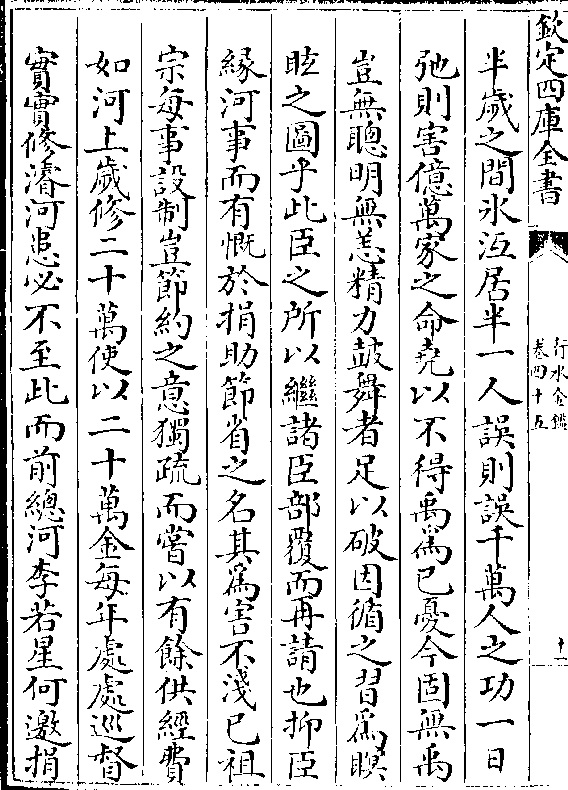 欽定四庫全書
行水金鑑
卷四十五
十一
半歲之間氷冱居半一人誤則誤千萬人之功一日
弛則害億萬家之命堯以不得禹爲已憂今固無禹
豈無聰明無恙精力鼓舞者足以破因循之習爲瞑
眩之圖乎此臣之所以繼諸臣部覆而再請也抑臣
緣河事而有慨於捐助節省之名其爲害不淺已祖
宗每事設制豈節約之意獨疏而嘗以有餘供經費
如河上歲修二十萬使以二十萬金每年處處巡督
實實修濬河患必不至此而前總河李若星何邀捐